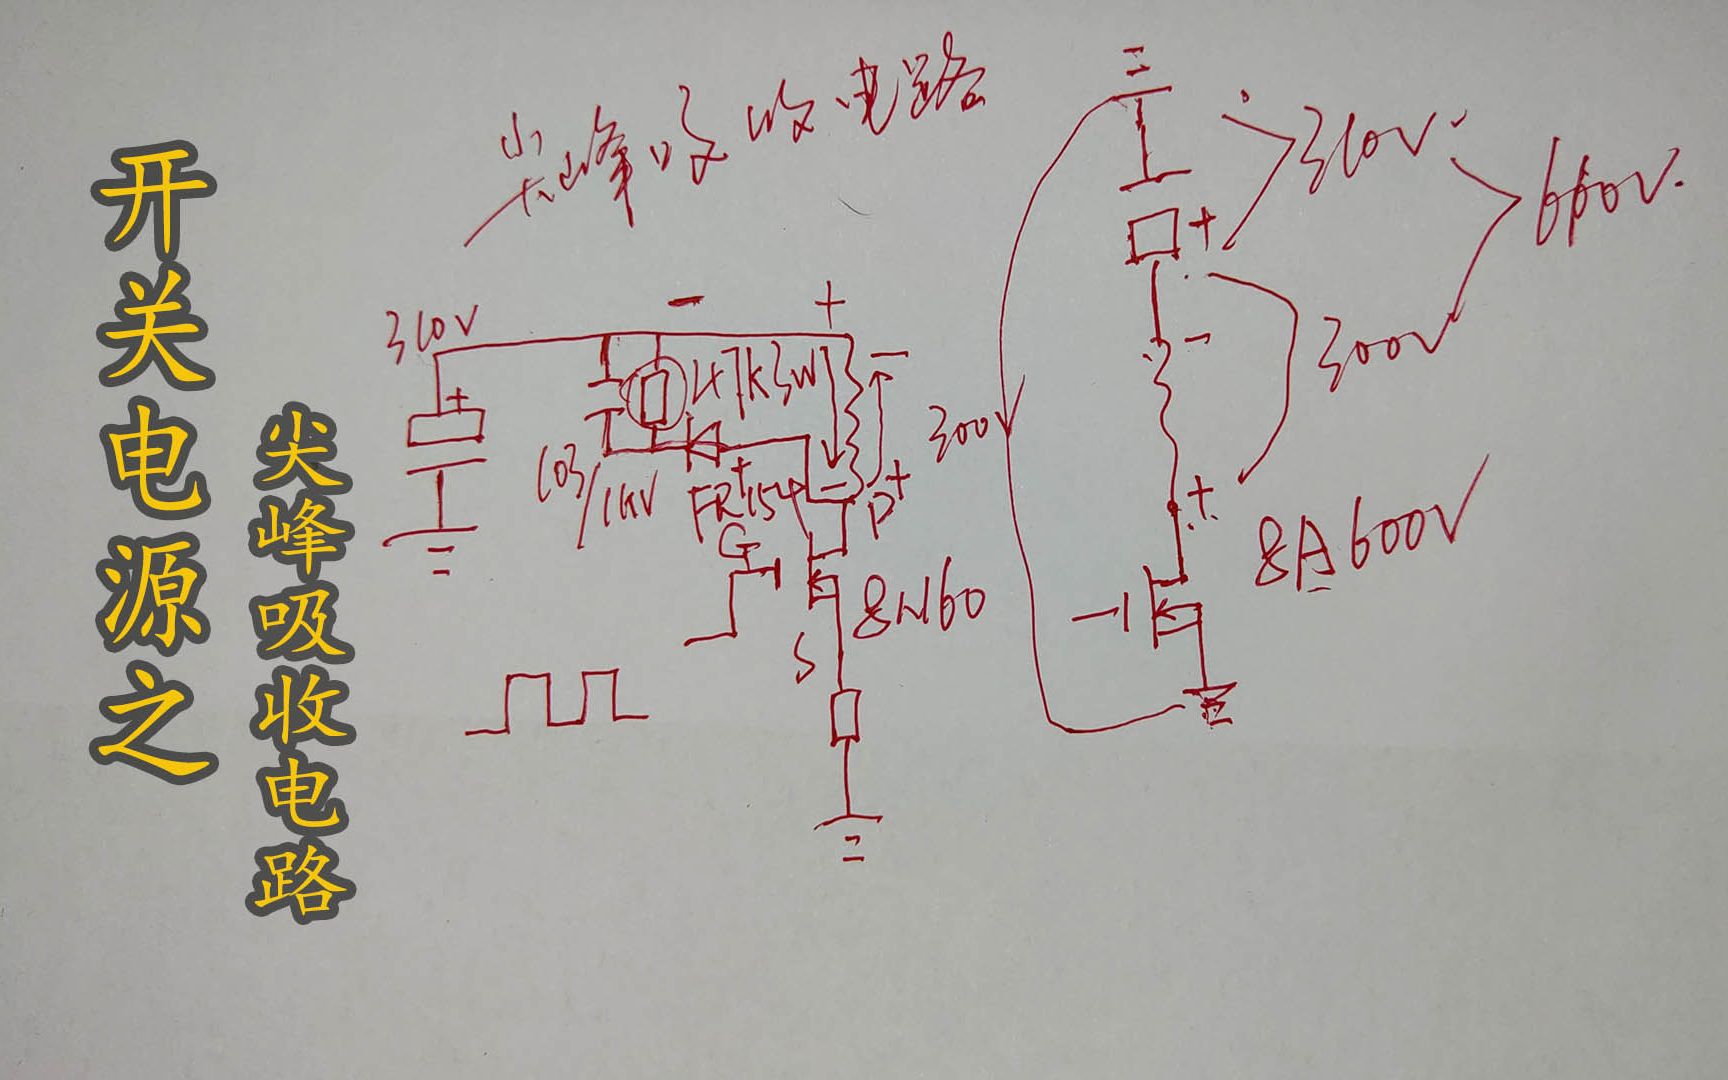 开关电源之
尖峰吸收电路
尖峰吸收电路
310V
- +
+
47K3W
-
103/1KV
+
FR154
-
P+
G
S
8N60
310V
+
-
300V
300V
+
8A600V